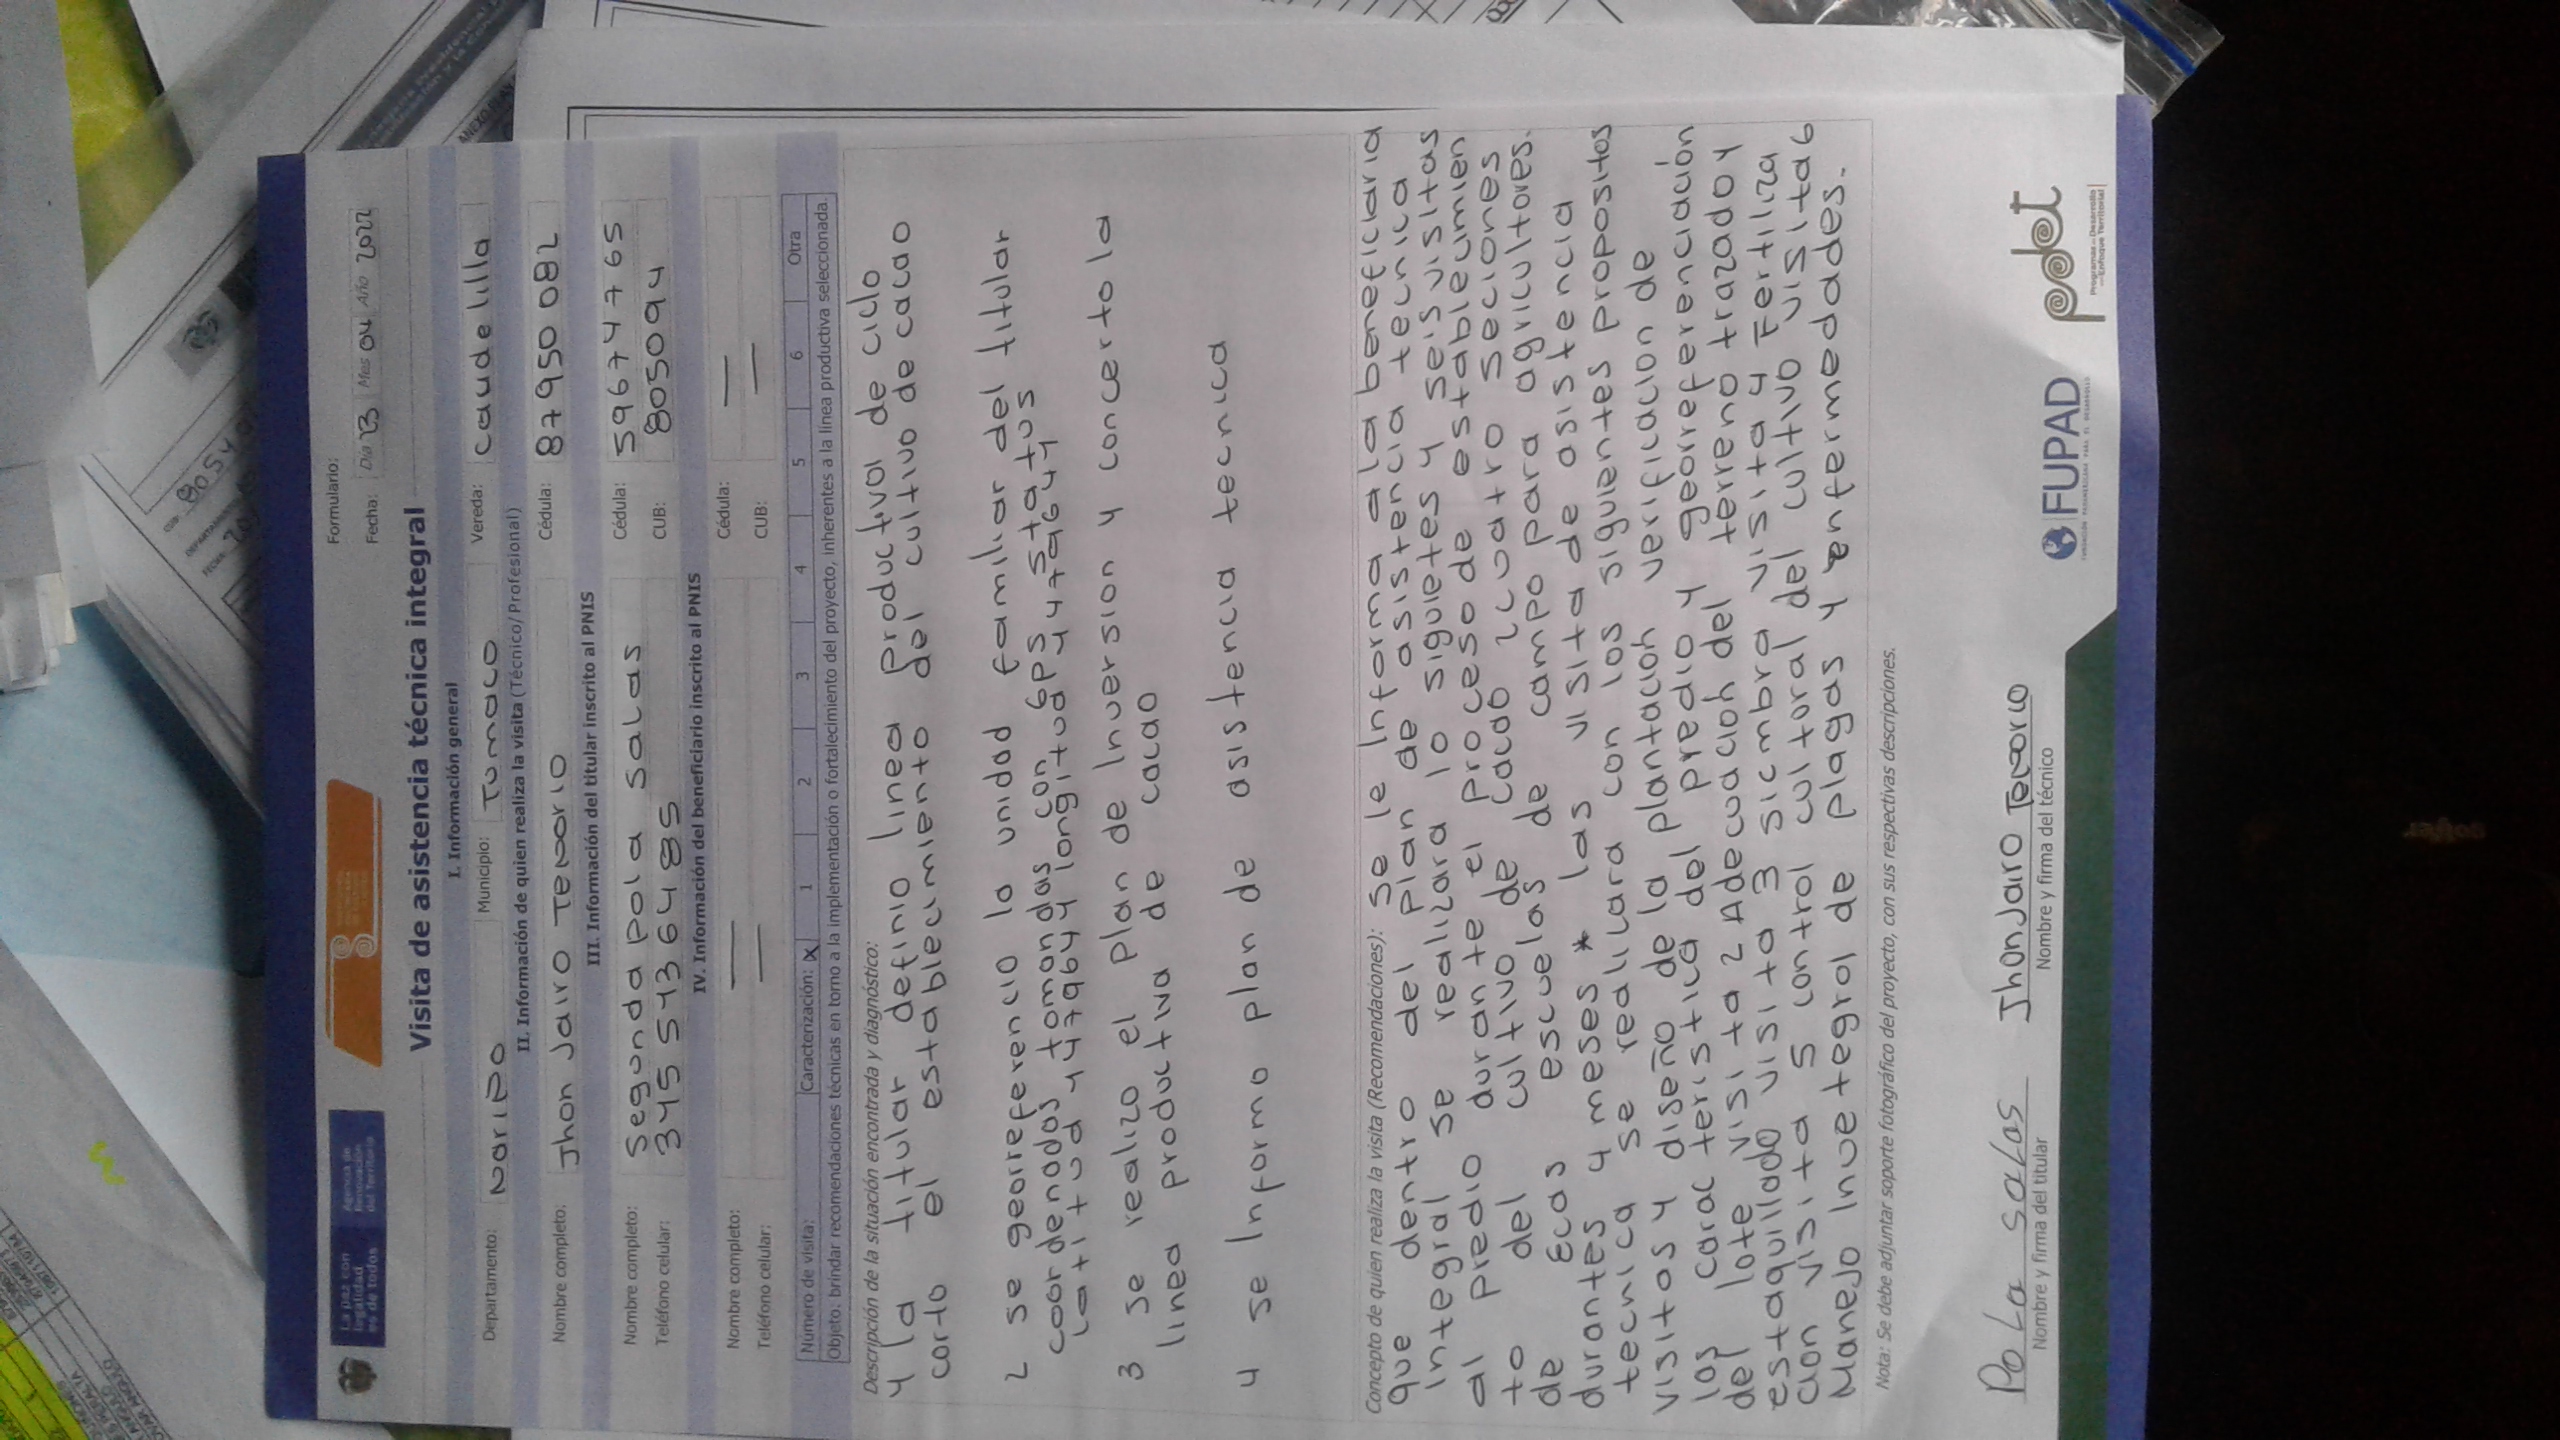 La paz con
legalidad
es de todos
Agencia de
Renovación
del Territorio
Formulario:
Fecha: Día 13 Mes 04 Año 2022
Visita de asistencia técnica integral
I. Información general
Departamento: Nariño Municipio: Tumaco Vereda: caudelilla
II. Información de quien realiza la visita (Técnico/Profesional)
Nombre completo: Jhon Jairo Tenorio Cédula: 87950082
III. Información del titular inscrito al PNIS
Nombre completo: Segunda pola Salas Cédula: 59674765
Teléfono celular: 3455436485 CUB: 805094
IV. Información del beneficiario inscrito al PNIS
Nombre completo: — Cédula: —
Teléfono celular: — CUB: —
Número de visita: Caracterización: X 1 2 3 4 5 6 Otra
Objeto: brindar recomendaciones técnicas en torno a la implementación o fortalecimiento del proyecto, inherentes a la línea productiva seleccionada.
Descripción de la situación encontrada y diagnóstico:
4 la titular definio linea productivol de ciclo
corto el establecimiento del cultivo de cacao
2 se georreferencio la unidad familiar del titular
coordenados tomandas con GPS status
Latitud 447964 y longitud
3 se realizo el plan de Inversion y concerto la
linea productiva de cacao
4 se Informo plan de asistencia tecnica
Concepto de quien realiza la visita (Recomendaciones): se le Informa a la beneficiaria
que dentro del plan de asistencia tecnica
Integral se realizara lo siguietes y seis visitas
al predio durante el proceso de establecimien
to del cultivo de cacao 2 cuatro secciones
de Ecas escuelas de campo para agricultores.
durantes 4 meses * las visita de asistencia
tecnica se realicara con los siguientes propositos
visitos y diseño de la plantación verificacion de
las caracteristica del predio y georreferenciación
del lote visita 2 Adecuación del terreno trazado y
estaquillado visita 3 siembra visita 4 Fertiliza
cion visita 5 control cultoral del cultivo visita 6
Manejo Inuetegrol de plagas y enfermedades.
Nota: Se debe adjuntar soporte fotográfico del proyecto, con sus respectivas descripciones.
Pola salas Jhon Jairo Tenorio
Nombre y firma del titular Nombre y firma del técnico
FUPAD
FUNDACIÓN PANAMERICANA PARA EL DESARROLLO
pdet
Programas de Desarrollo
con Enfoque Territorial